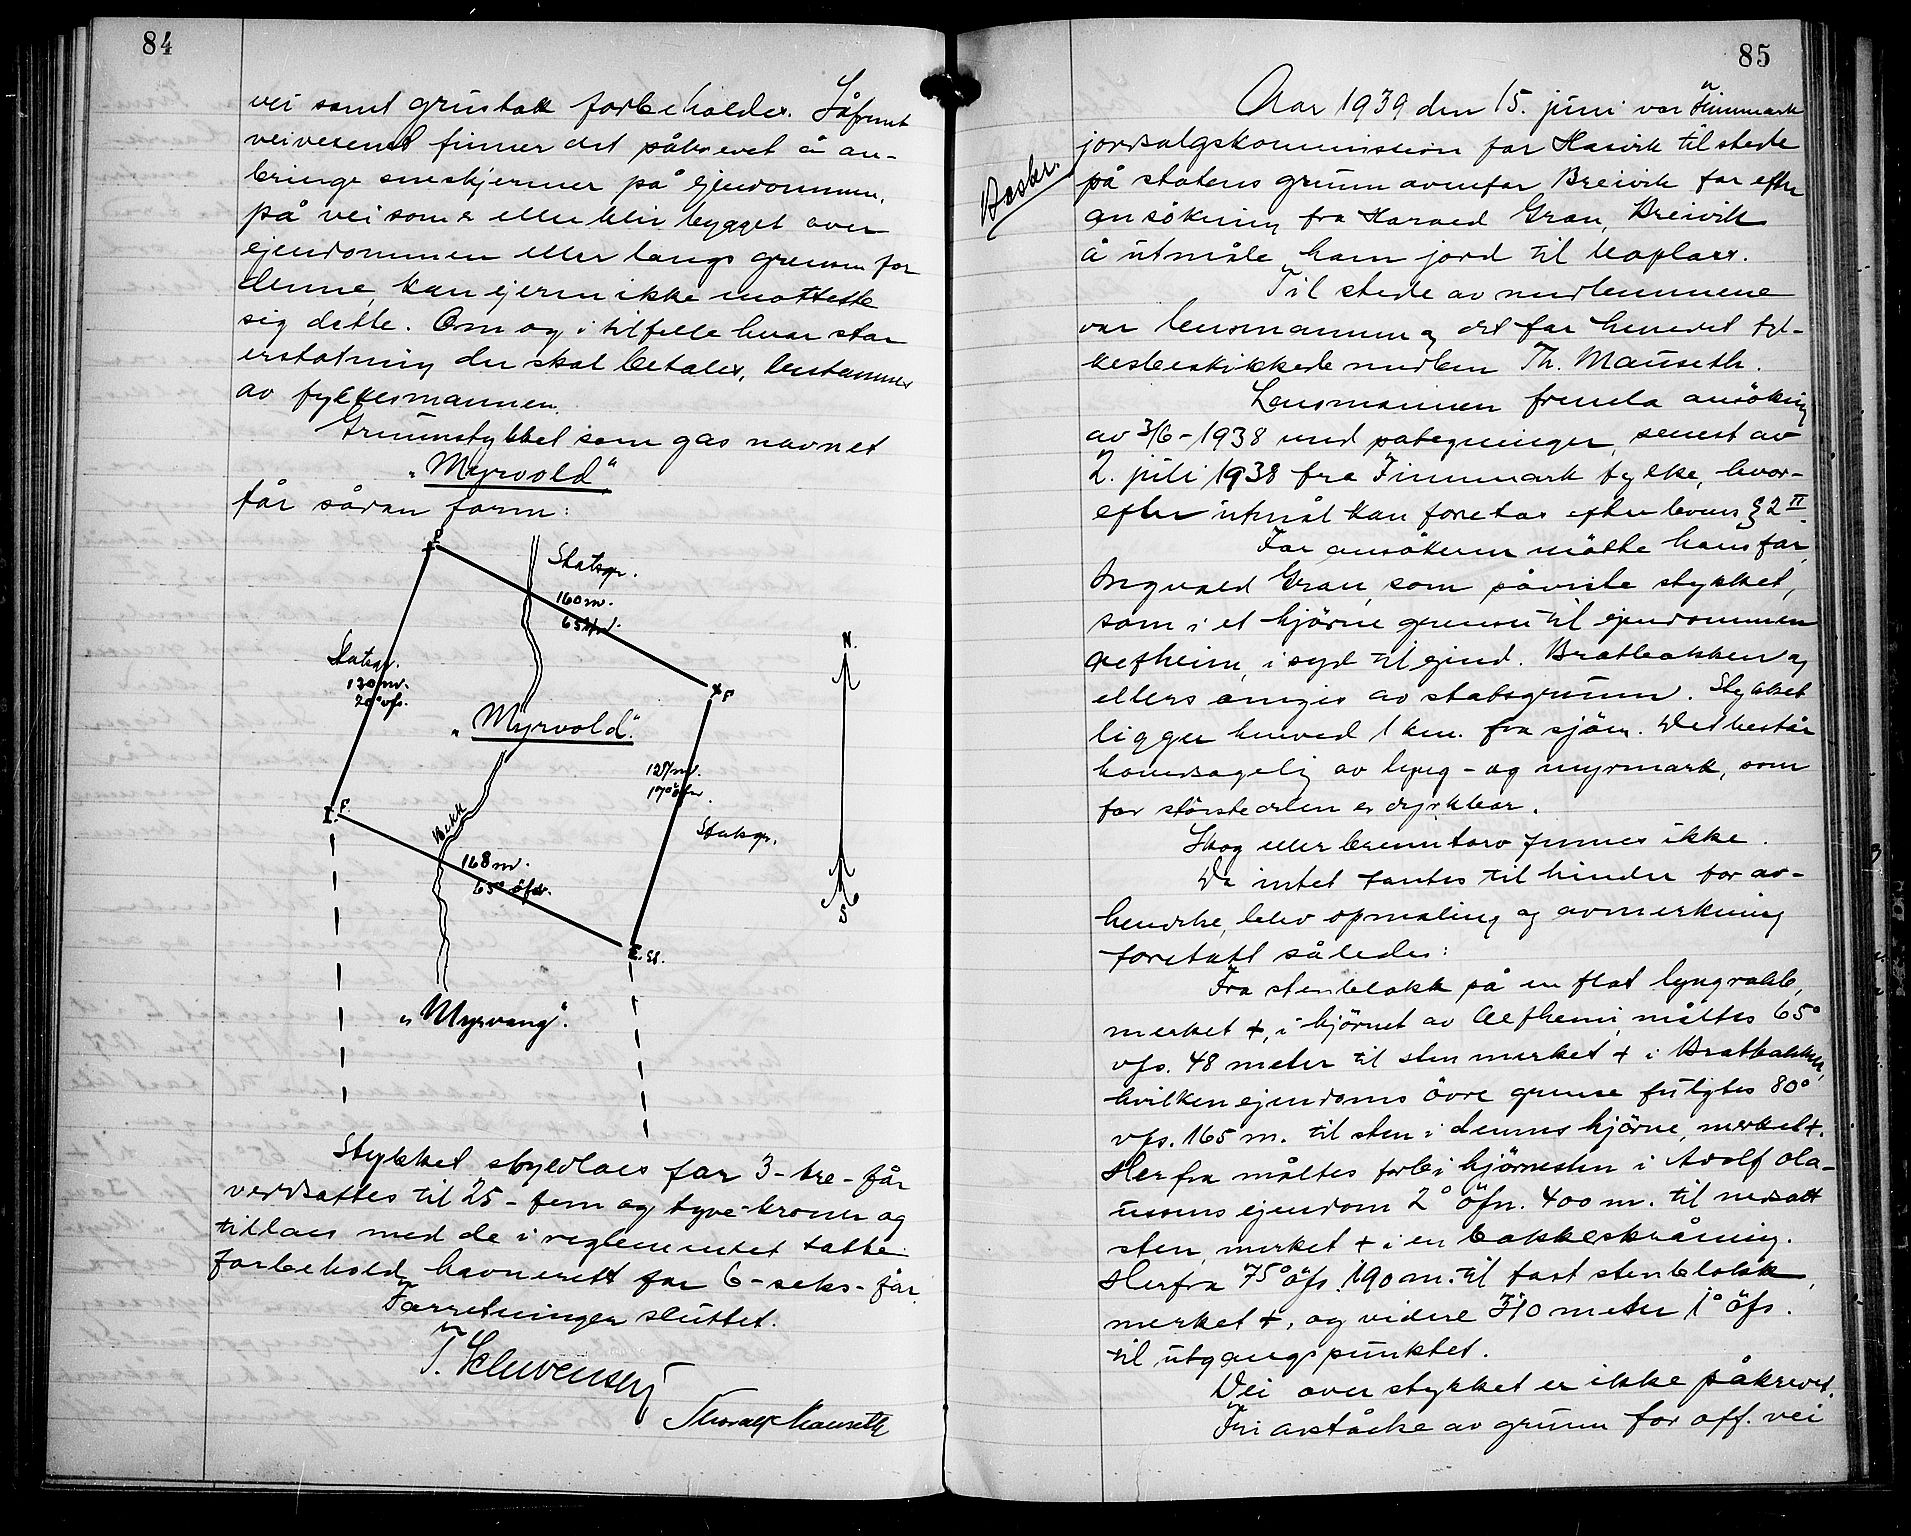 84
vei samt grustak forbeholdes. Såfremt
veivesenet finner det påkrevet å an-
bringe sneskjermer på ejendommen,
på vei som er eller blir bygget over
ejendommen eller langs grensen for
denne, kan ejeren ikke motsette
sig dette. Om og i tilfelle hvor stor
erstatning der skal betales, bestemmes
av fylkesmannen.
Grunnstykket som gas navnet
„Myrvold"
får sådan form:
Statsgr.
160 m.
65°
Statsgr.
130 m.
20° vfs.
„Myrvold".
N.
127 m.
170 öfn.
Statsgr.
Bekk
168 m.
65° öfs.
S
„Myrvang".
Stykket skyldlaes for 3-tre-ører
verdsattes til 25-fem og tyve-kroner og
tillaes med de i reglementet tatte
forbehold havnerett for 6-seks-får.
Forretningen sluttet.
Thoralf Mauseth
85
Aar 1939 den 15. juni var Finnmark
jordsalgskommission for Hasvik tilstede
Beskr.
på statens grunn ovenfor Breivik for efter
ansökning fra Harald Gran, Breivik
å utmåle ham jord til boplass.
Til stede av medlemmene
var lensmannen og det for henredet fyl-
kesbeskikkede medlem Th. Mauseth.
Lensmannen fremla ansökning
av 3/6-1938 med pategninger, senest av
2. juli 1938 fra Finnmark fylke, hvor-
efter utmål kan foretas efter lovens § 2 II.
For ansökeren mötte hans far,
Ingvald Gran, som påviste stykket,
som i et hjörne grenser til ejendommen
Aefheim, i syd til ejend. Bratbakken og
ellers omgis av statsgrunn. Stykket
ligger henved 1 km. fra sjöen. Det består
hovedsagelig av lyng- og myrmark, som
for störstedelen er dyrkbar.
Skog eller brenntorv finnes ikke.
Da intet fantes til hinder for av-
hendelse, blev opmaling og avmerkning
foretatt således:
Fra stenblokk på en flat lyngrabb,
merket +, i hjörnet av Aefheim, måltes 65°
vfs. 48 meter til sten merket + i Bratbakken,
hvilken ejendoms övre grense fulgtes 80°
vfs. 165 m. til sten i dennes hjörne, merket +.
Herfra måltes forbi hjörnesten i Adolf Ola-
ussens ejendom 2° öfn. 400 m. til nedsatt
sten, merket + i en bakkeskråning.
Herfra 75° öfs. 190 m. til fast stenblokk,
merket +, og videre 310 meter 1° öfs.
til utgangspunktet.
Vei over stykket er ikke påkrevet.
Fri avståelse av grunn for off. vei